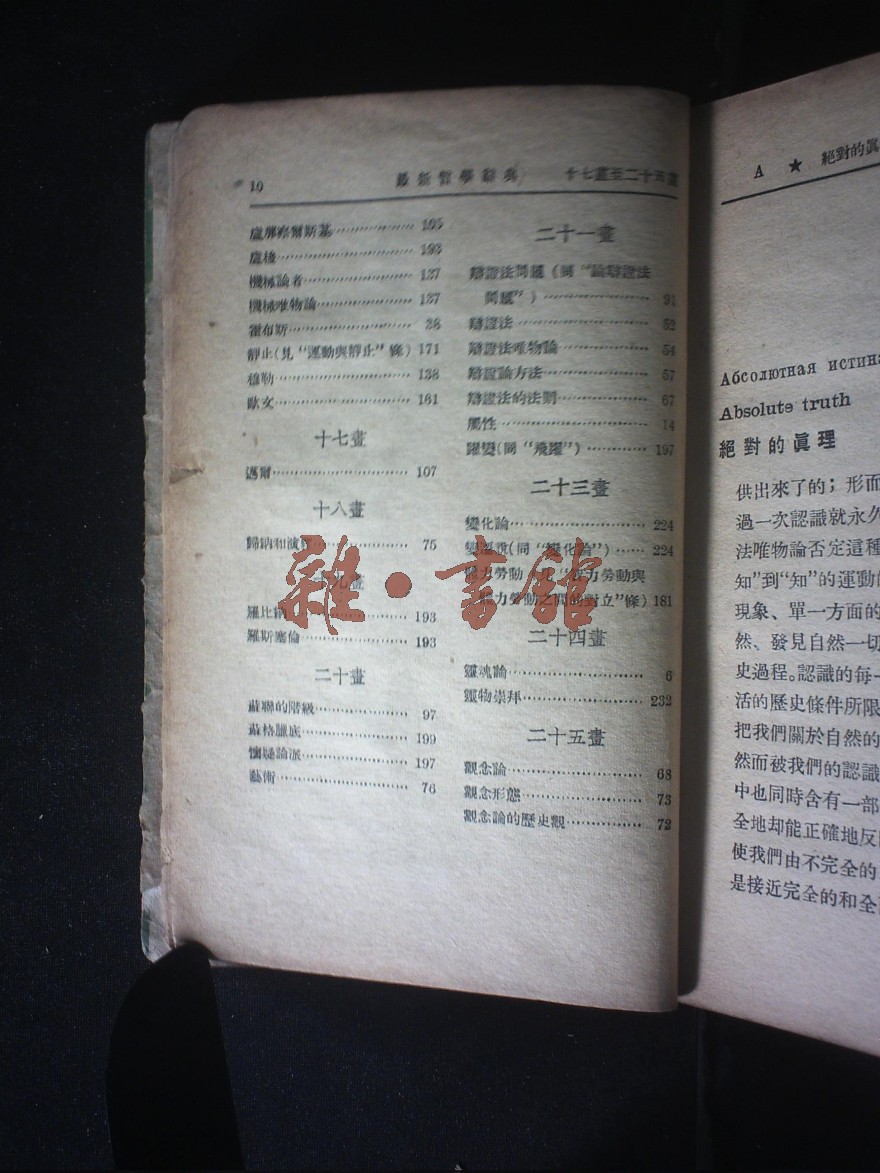 10
最新哲學辭典
十七畫至二十五畫
盧那察爾斯基 195
盧梭 193
機械論者 137
機械唯物論 137
霍布斯 38
靜止(見“運動與靜止”條) 171
穆勒 138
歐文 181
十七畫
邁爾 107
十八畫
歸納和演 75
十九畫
羅比 193
羅斯塞倫 193
二十畫
蘇聯的階級 97
蘇格臘底 199
懷疑論派 197
藝術 76
二十一畫
辯證法問題(同“論辯證法
問題”) 91
辯證法 52
辯證法唯物論 54
辯證論方法 57
辯證法的法則 67
屬性 14
躍變(同“飛躍”) 197
二十三畫
變化論 224
變 說(同“變化論”) 224
體力勞動 力勞動與
體力勞動之間的對立”條) 181
二十四畫
靈魂論 6
靈物崇拜 232
二十五畫
觀念論 68
觀念形態 73
觀念論的歷史觀 72
雜·書館
A ★ 絕對的眞
Абсолютная истина
Absolute truth
絕對的眞理
供出來了的；形而
過一次認識就永久
法唯物論否定這種
知”到“知”的運動
現象、單一方面的
然、發見自然一切
史過程。認識的每一
活的歷史條件所限
把我們關於自然的
然而被我們的認識
中也同時含有一部
全地却能正確地反
使我們由不完全的
是接近完全的和全